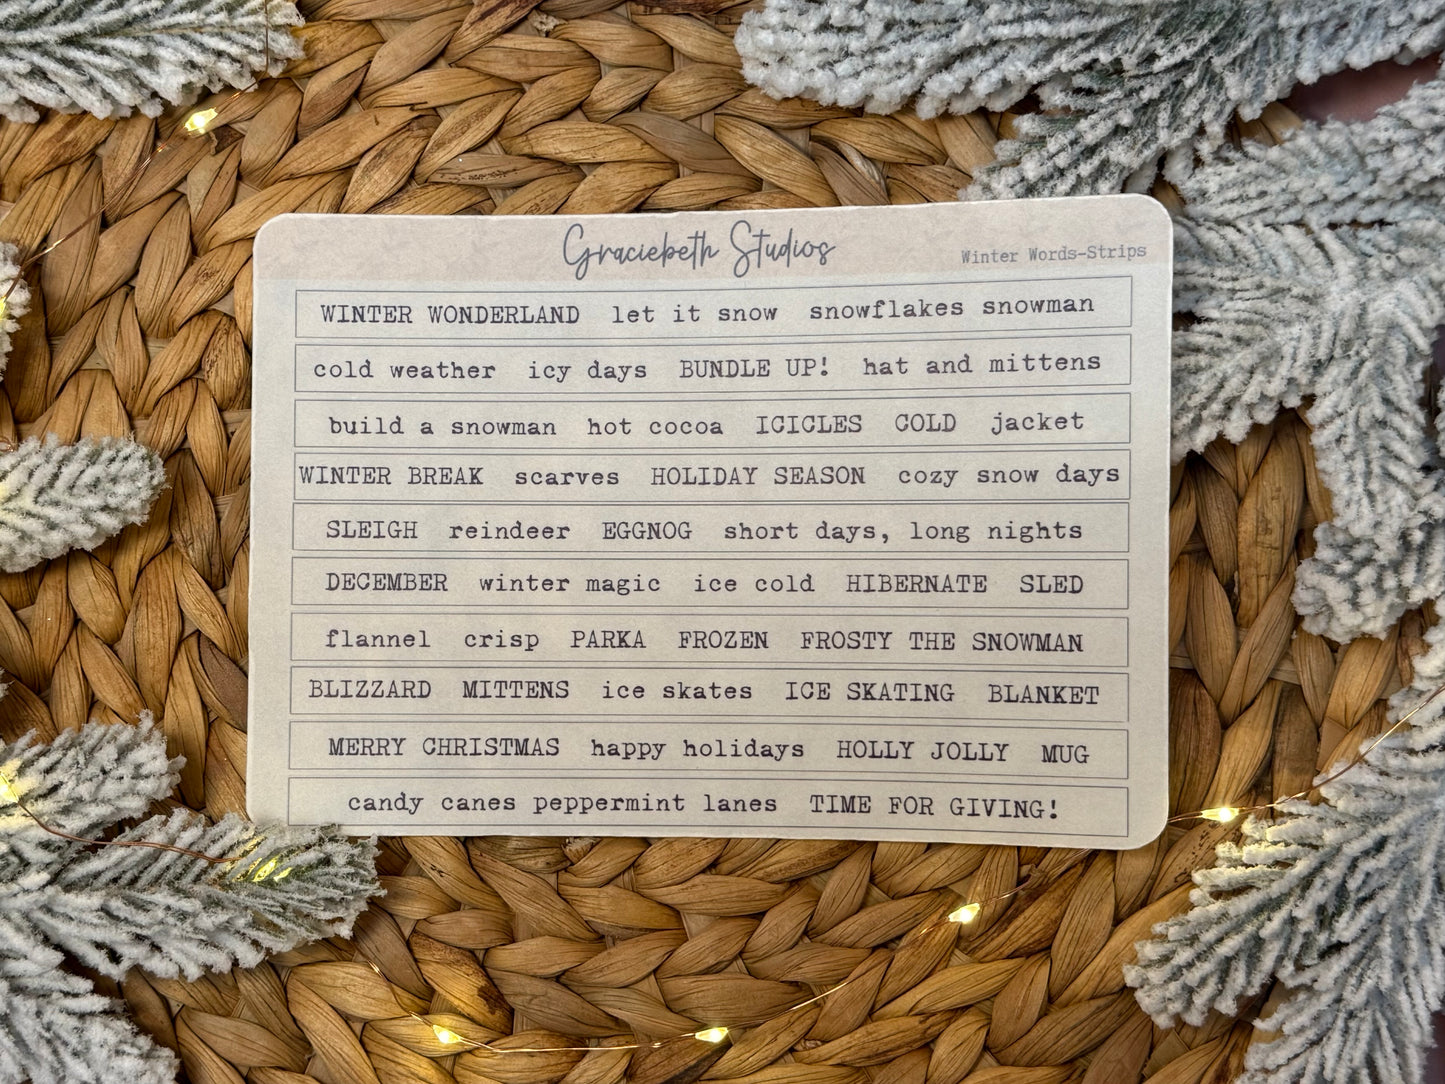 Graciebeth Studios
Winter Words-Strips
WINTER WONDERLAND let it snow snowflakes snowman
cold weather icy days BUNDLE UP! hat and mittens
build a snowman hot cocoa ICICLES COLD jacket
WINTER BREAK scarves HOLIDAY SEASON cozy snow days
SLEIGH reindeer EGGNOG short days, long nights
DECEMBER winter magic ice cold HIBERNATE SLED
flannel crisp PARKA FROZEN FROSTY THE SNOWMAN
BLIZZARD MITTENS ice skates ICE SKATING BLANKET
MERRY CHRISTMAS happy holidays HOLLY JOLLY MUG
candy canes peppermint lanes TIME FOR GIVING!